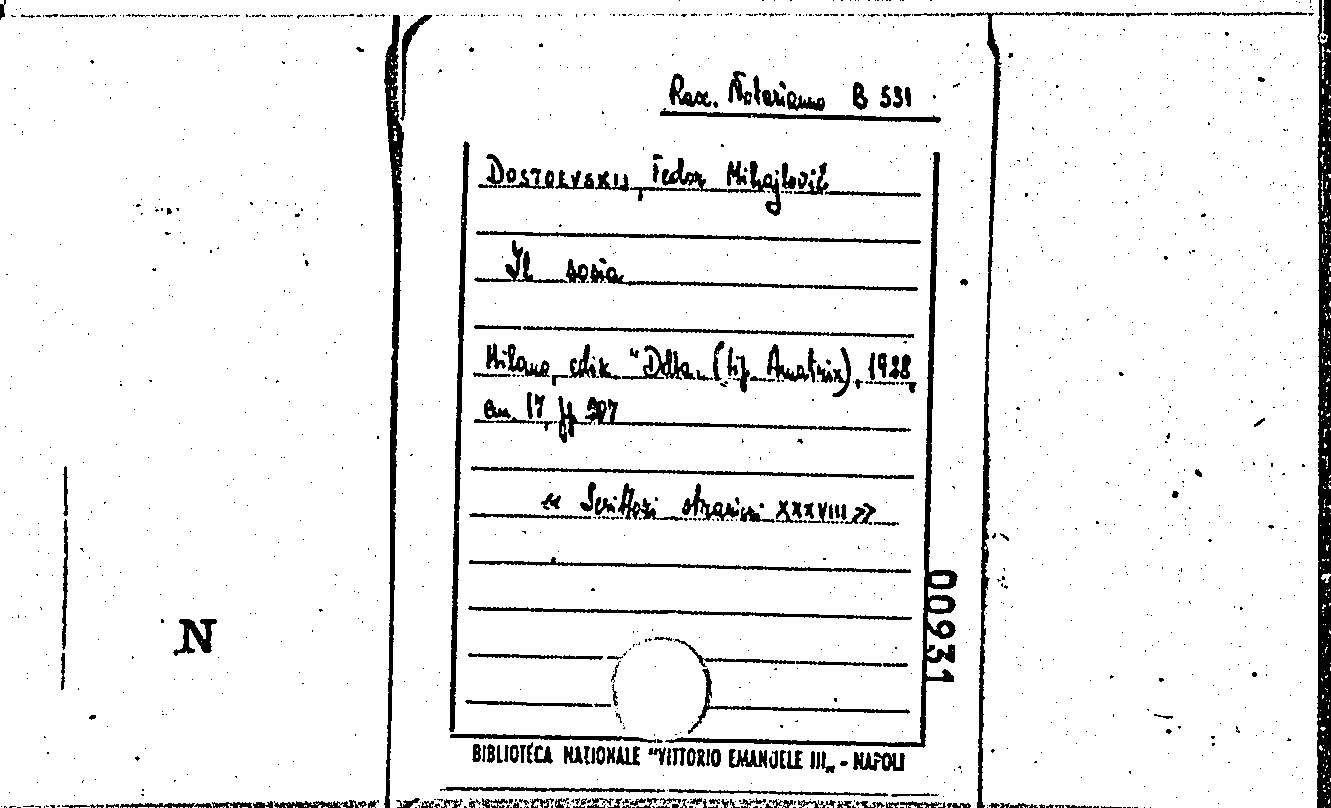 Rac. Notarianno B 531
DOSTOEVSKIJ, Fedor Mihajlovič
Il sosia
Milano, ediz. "Delta„ (tip. Amatrix), 1928,
in 17, pp. 207
« Scrittori stranieri XXXVIII »
00931
N
BIBLIOTECA NAZIONALE "VITTORIO EMANUELE III„ - NAPOLI